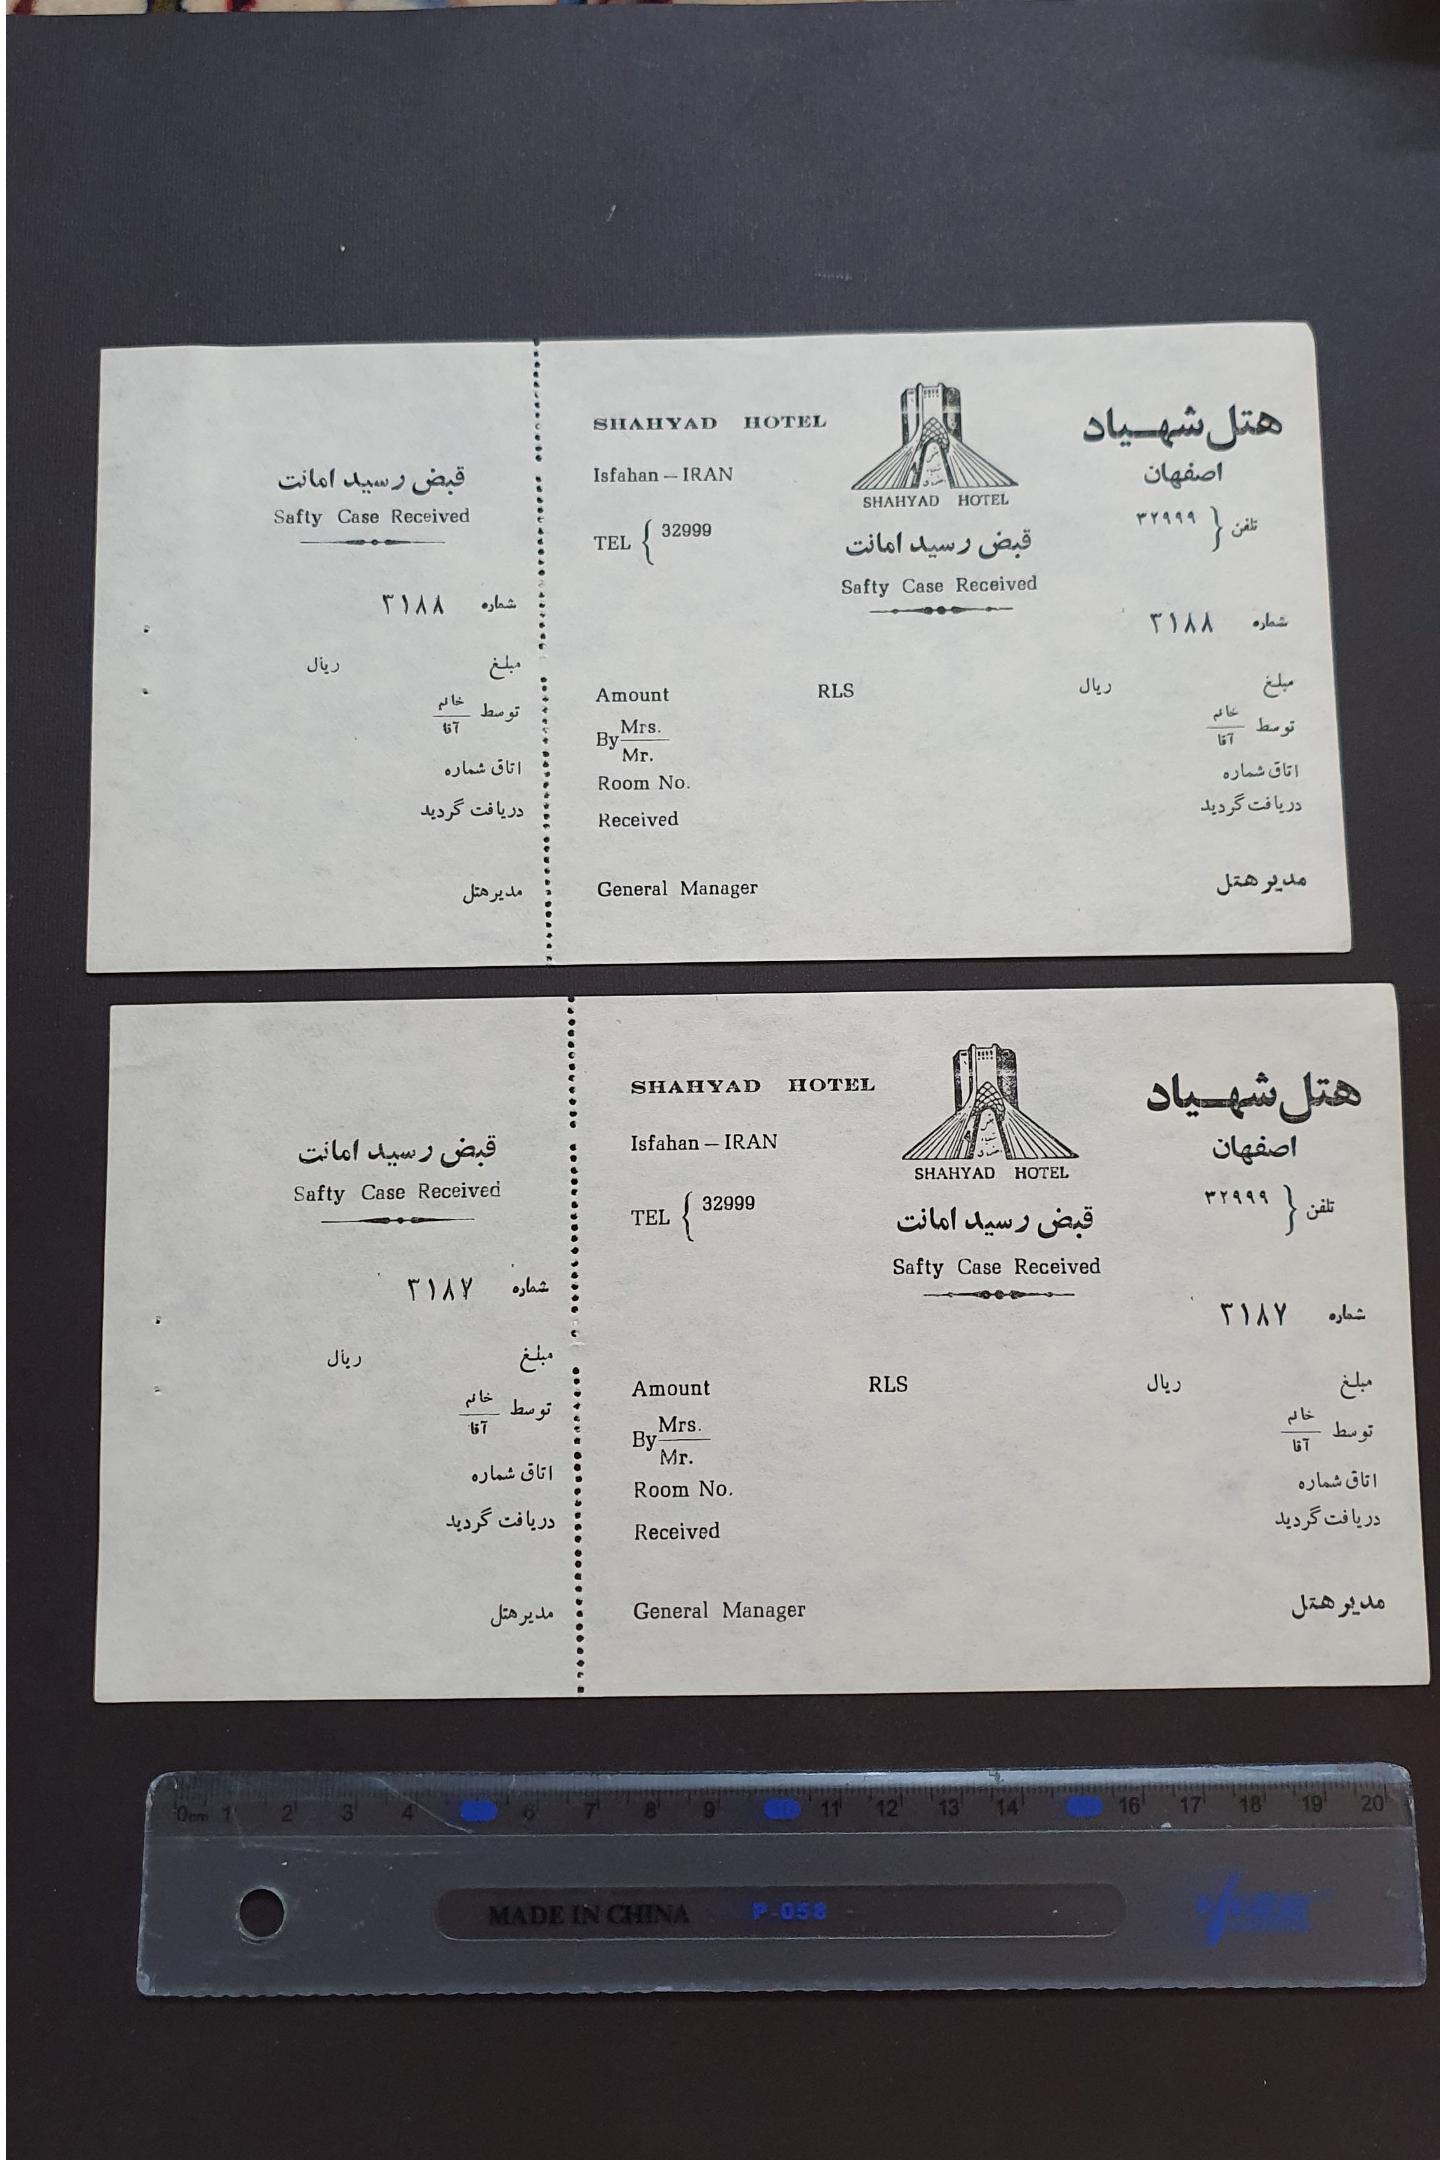 قبض رسید امانت
Safty Case Received
شماره ۳۱۸۸
مبلغ ریال
توسط خانم
آقا
اتاق شماره
دریافت گردید
مدیر هتل
SHAHYAD HOTEL
Isfahan – IRAN
TEL { 32999
SHAHYAD HOTEL
قبض رسید امانت
Safty Case Received
هتل شهیاد
اصفهان
تلفن { ۳۲۹۹۹
شماره ۳۱۸۸
Amount RLS
By Mrs.
Mr.
Room No.
Received
General Manager
مبلغ ریال
توسط خانم
آقا
اتاق شماره
دریافت گردید
مدیر هتل
قبض رسید امانت
Safty Case Received
شماره ۳۱۸۷
مبلغ ریال
توسط خانم
آقا
اتاق شماره
دریافت گردید
مدیر هتل
SHAHYAD HOTEL
Isfahan – IRAN
TEL { 32999
SHAHYAD HOTEL
قبض رسید امانت
Safty Case Received
هتل شهیاد
اصفهان
تلفن { ۳۲۹۹۹
شماره ۳۱۸۷
Amount RLS
By Mrs.
Mr.
Room No.
Received
General Manager
مبلغ ریال
توسط خانم
آقا
اتاق شماره
دریافت گردید
مدیر هتل
0cm 1 2 3 4 5 6 7 8 9 10 11 12 13 14 15 16 17 18 19 20
MADE IN CHINA P-058